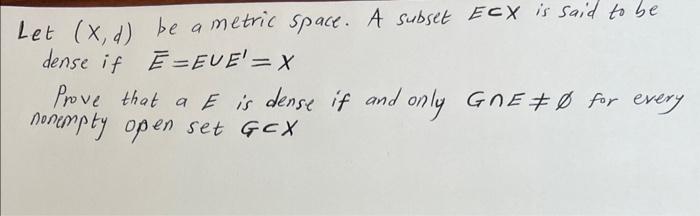 Let (X,d) be a metric space. A subset E⊂X is said to be
dense if E̅ = E∪E' = X
Prove that a E is dense if and only G∩E ≠ ∅ for every
nonempty open set G⊂X